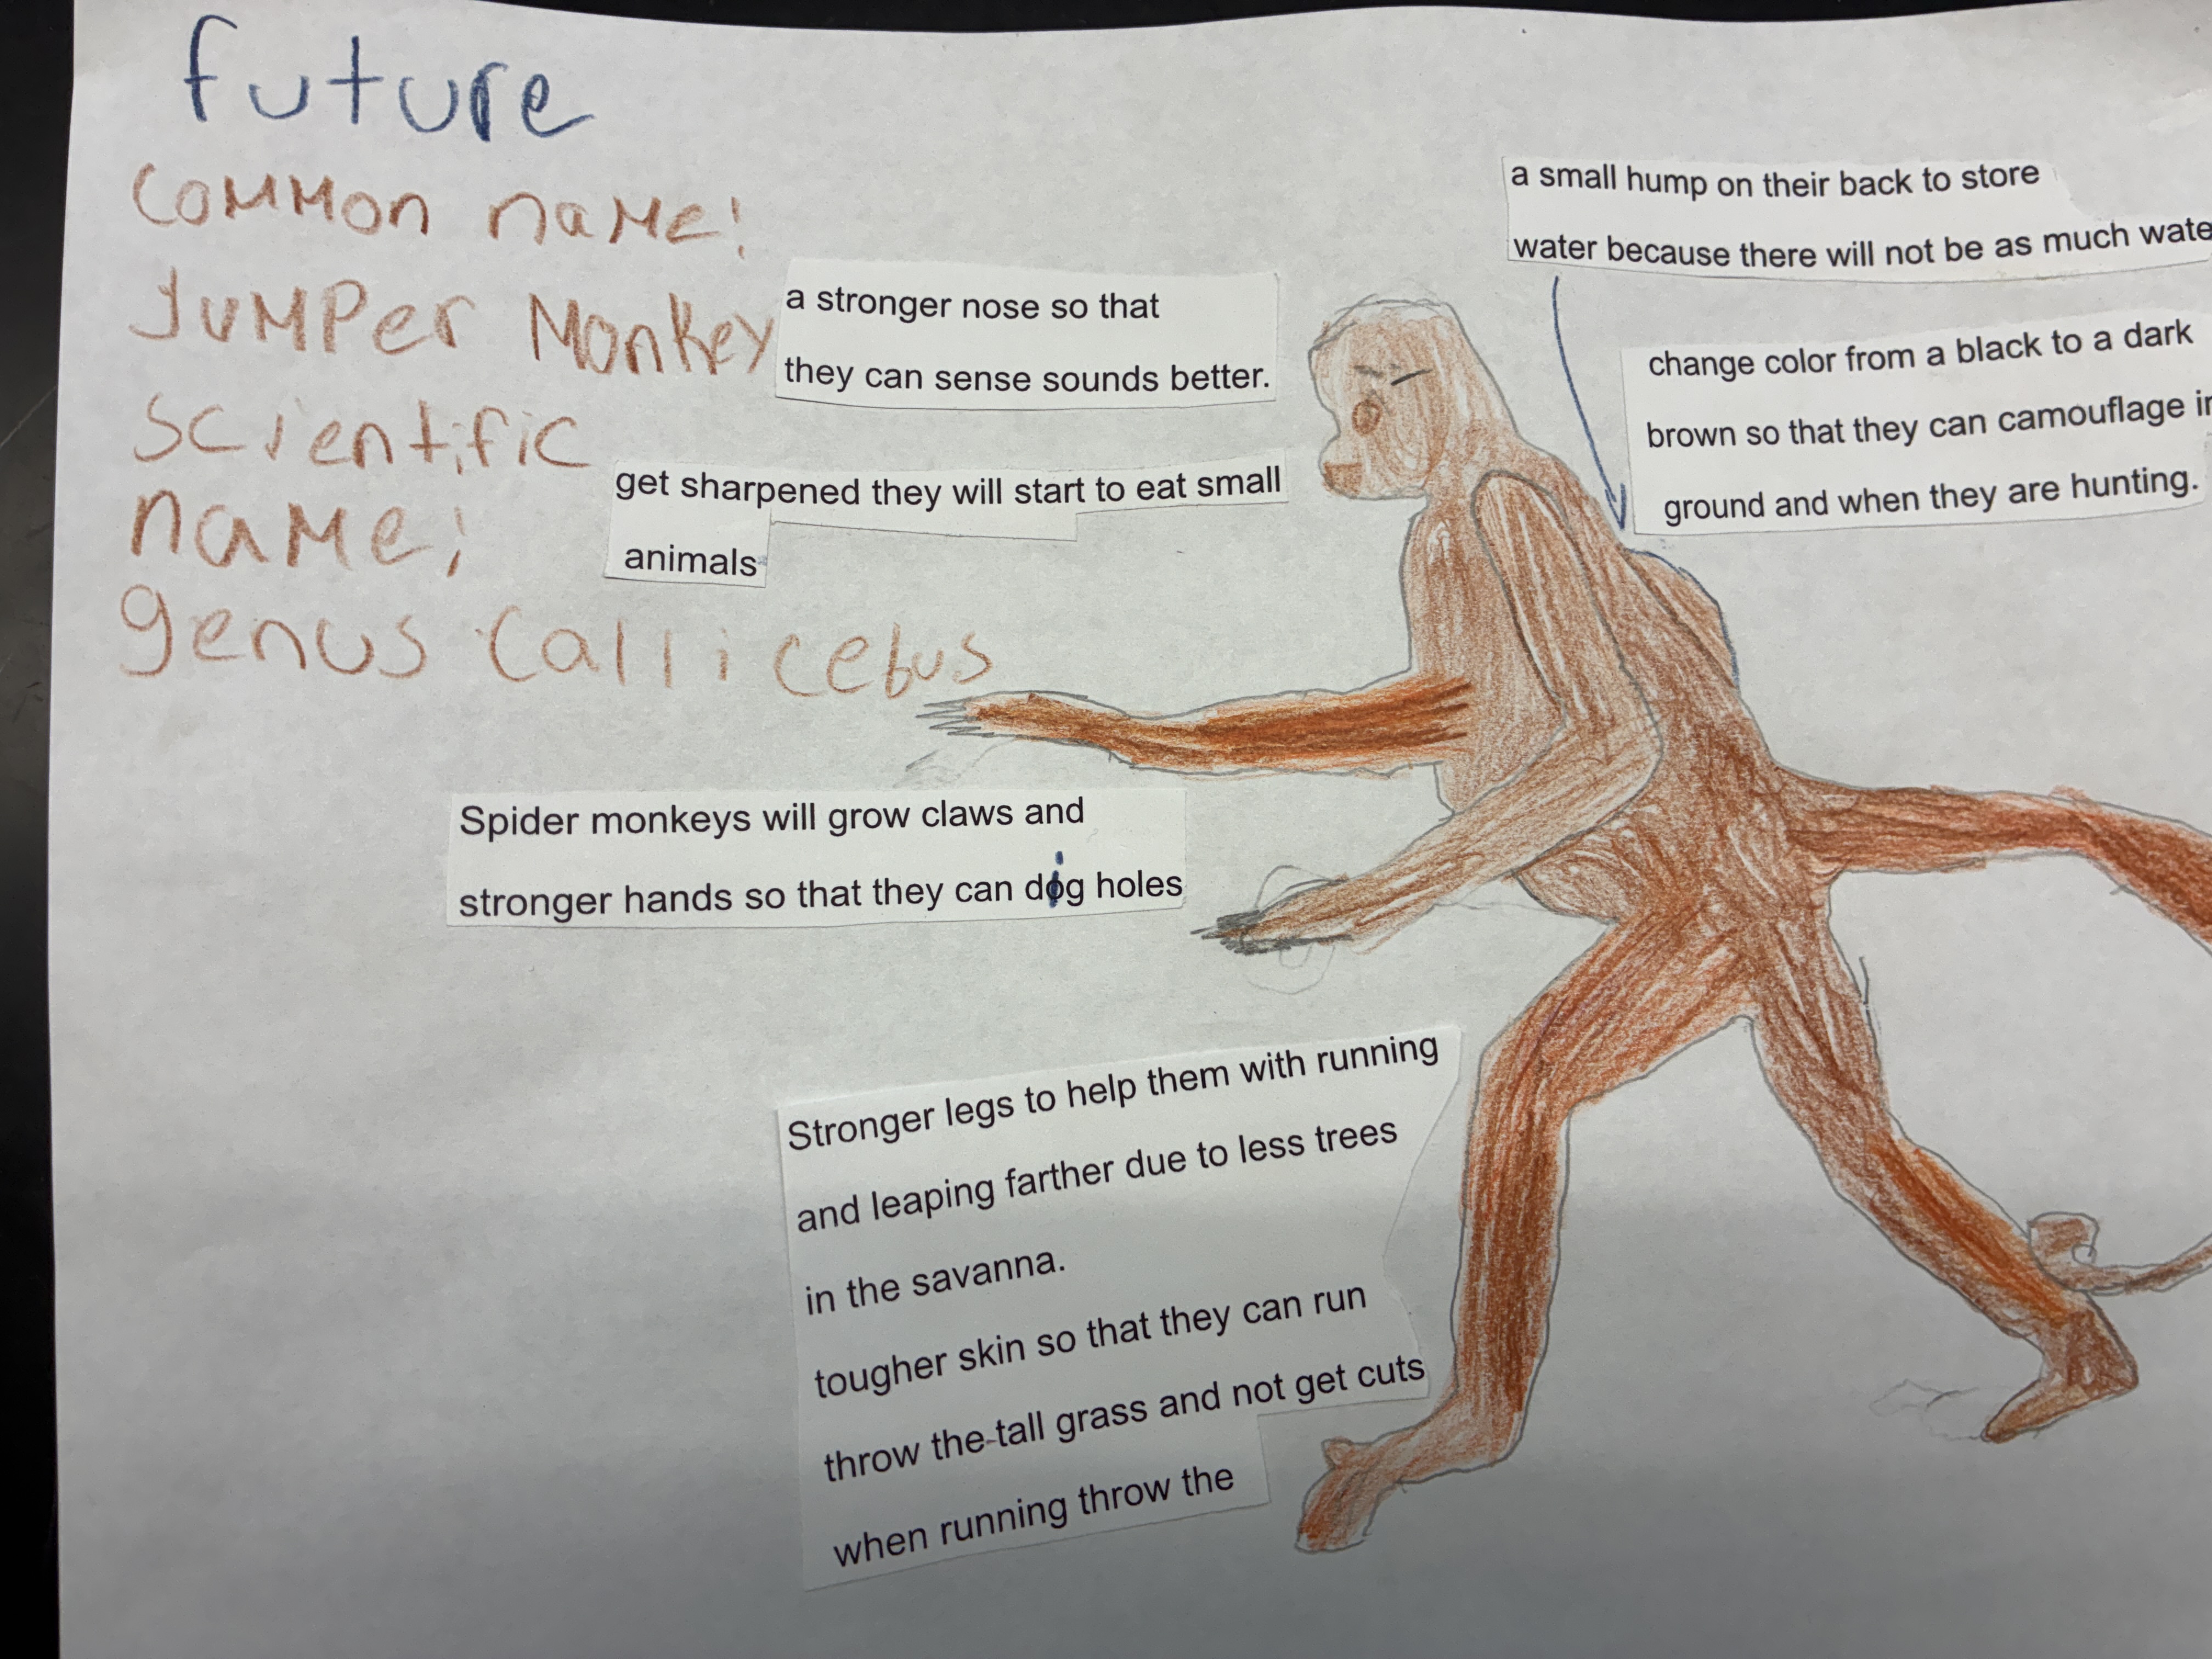 future
common name:
Jumper Monkey
scientific
name;
genus callicebus
a stronger nose so that
they can sense sounds better.
get sharpened they will start to eat small
animals
a small hump on their back to store
water because there will not be as much wate
change color from a black to a dark
brown so that they can camouflage in
ground and when they are hunting.
Spider monkeys will grow claws and
stronger hands so that they can dig holes
Stronger legs to help them with running
and leaping farther due to less trees
in the savanna.
tougher skin so that they can run
throw the tall grass and not get cuts
when running throw the